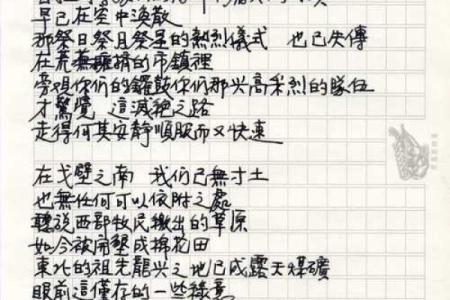 早已在空中渙散
那祭日祭月祭星的熱烈儀式　也已失傳
在荒蕪擁擠的市鎮裡
旁觀你們的鑼鼓你們那兴高采烈的隊伍
才驚覺　這滅絕之路
走得何其安靜順服而又快速
在戈壁之南　我們已無寸土
也無任何可以依附之處
聽说西部牧民繳出的草原
如今被開墾成棉花田
東北的祖先龍兴之地已成露天煤礦
眼前這僅存的一些綠意